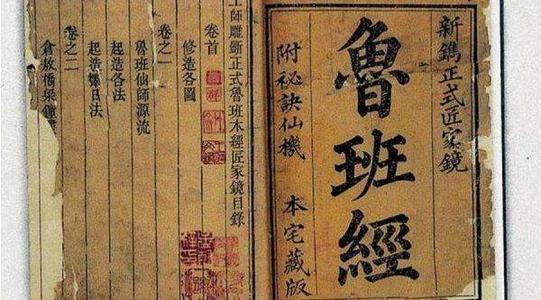 新鐫正式匠家鏡
魯班經
附祕訣仙機
本宅藏版
工師雕斵正式魯班木經匠家鏡目錄
卷首
修造各圖
卷之一
魯班仙師源流
起造各法
起造擇日法
卷之二
倉敖橋梁鐘